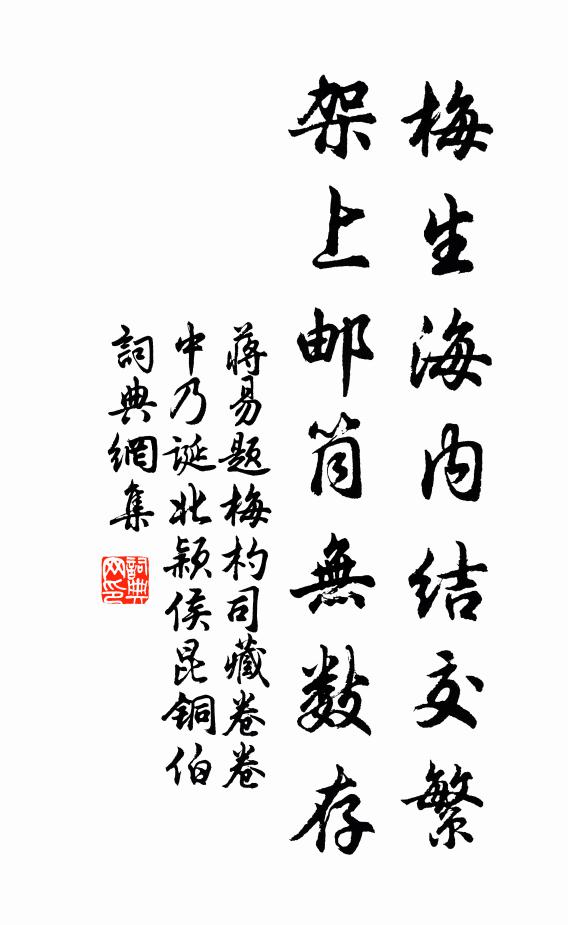 梅生海内结交繁
架上邮筒無数存
蒋易题梅杓司藏卷卷
中乃诞北颖侯昆铜伯
詞典網集
詞典网印